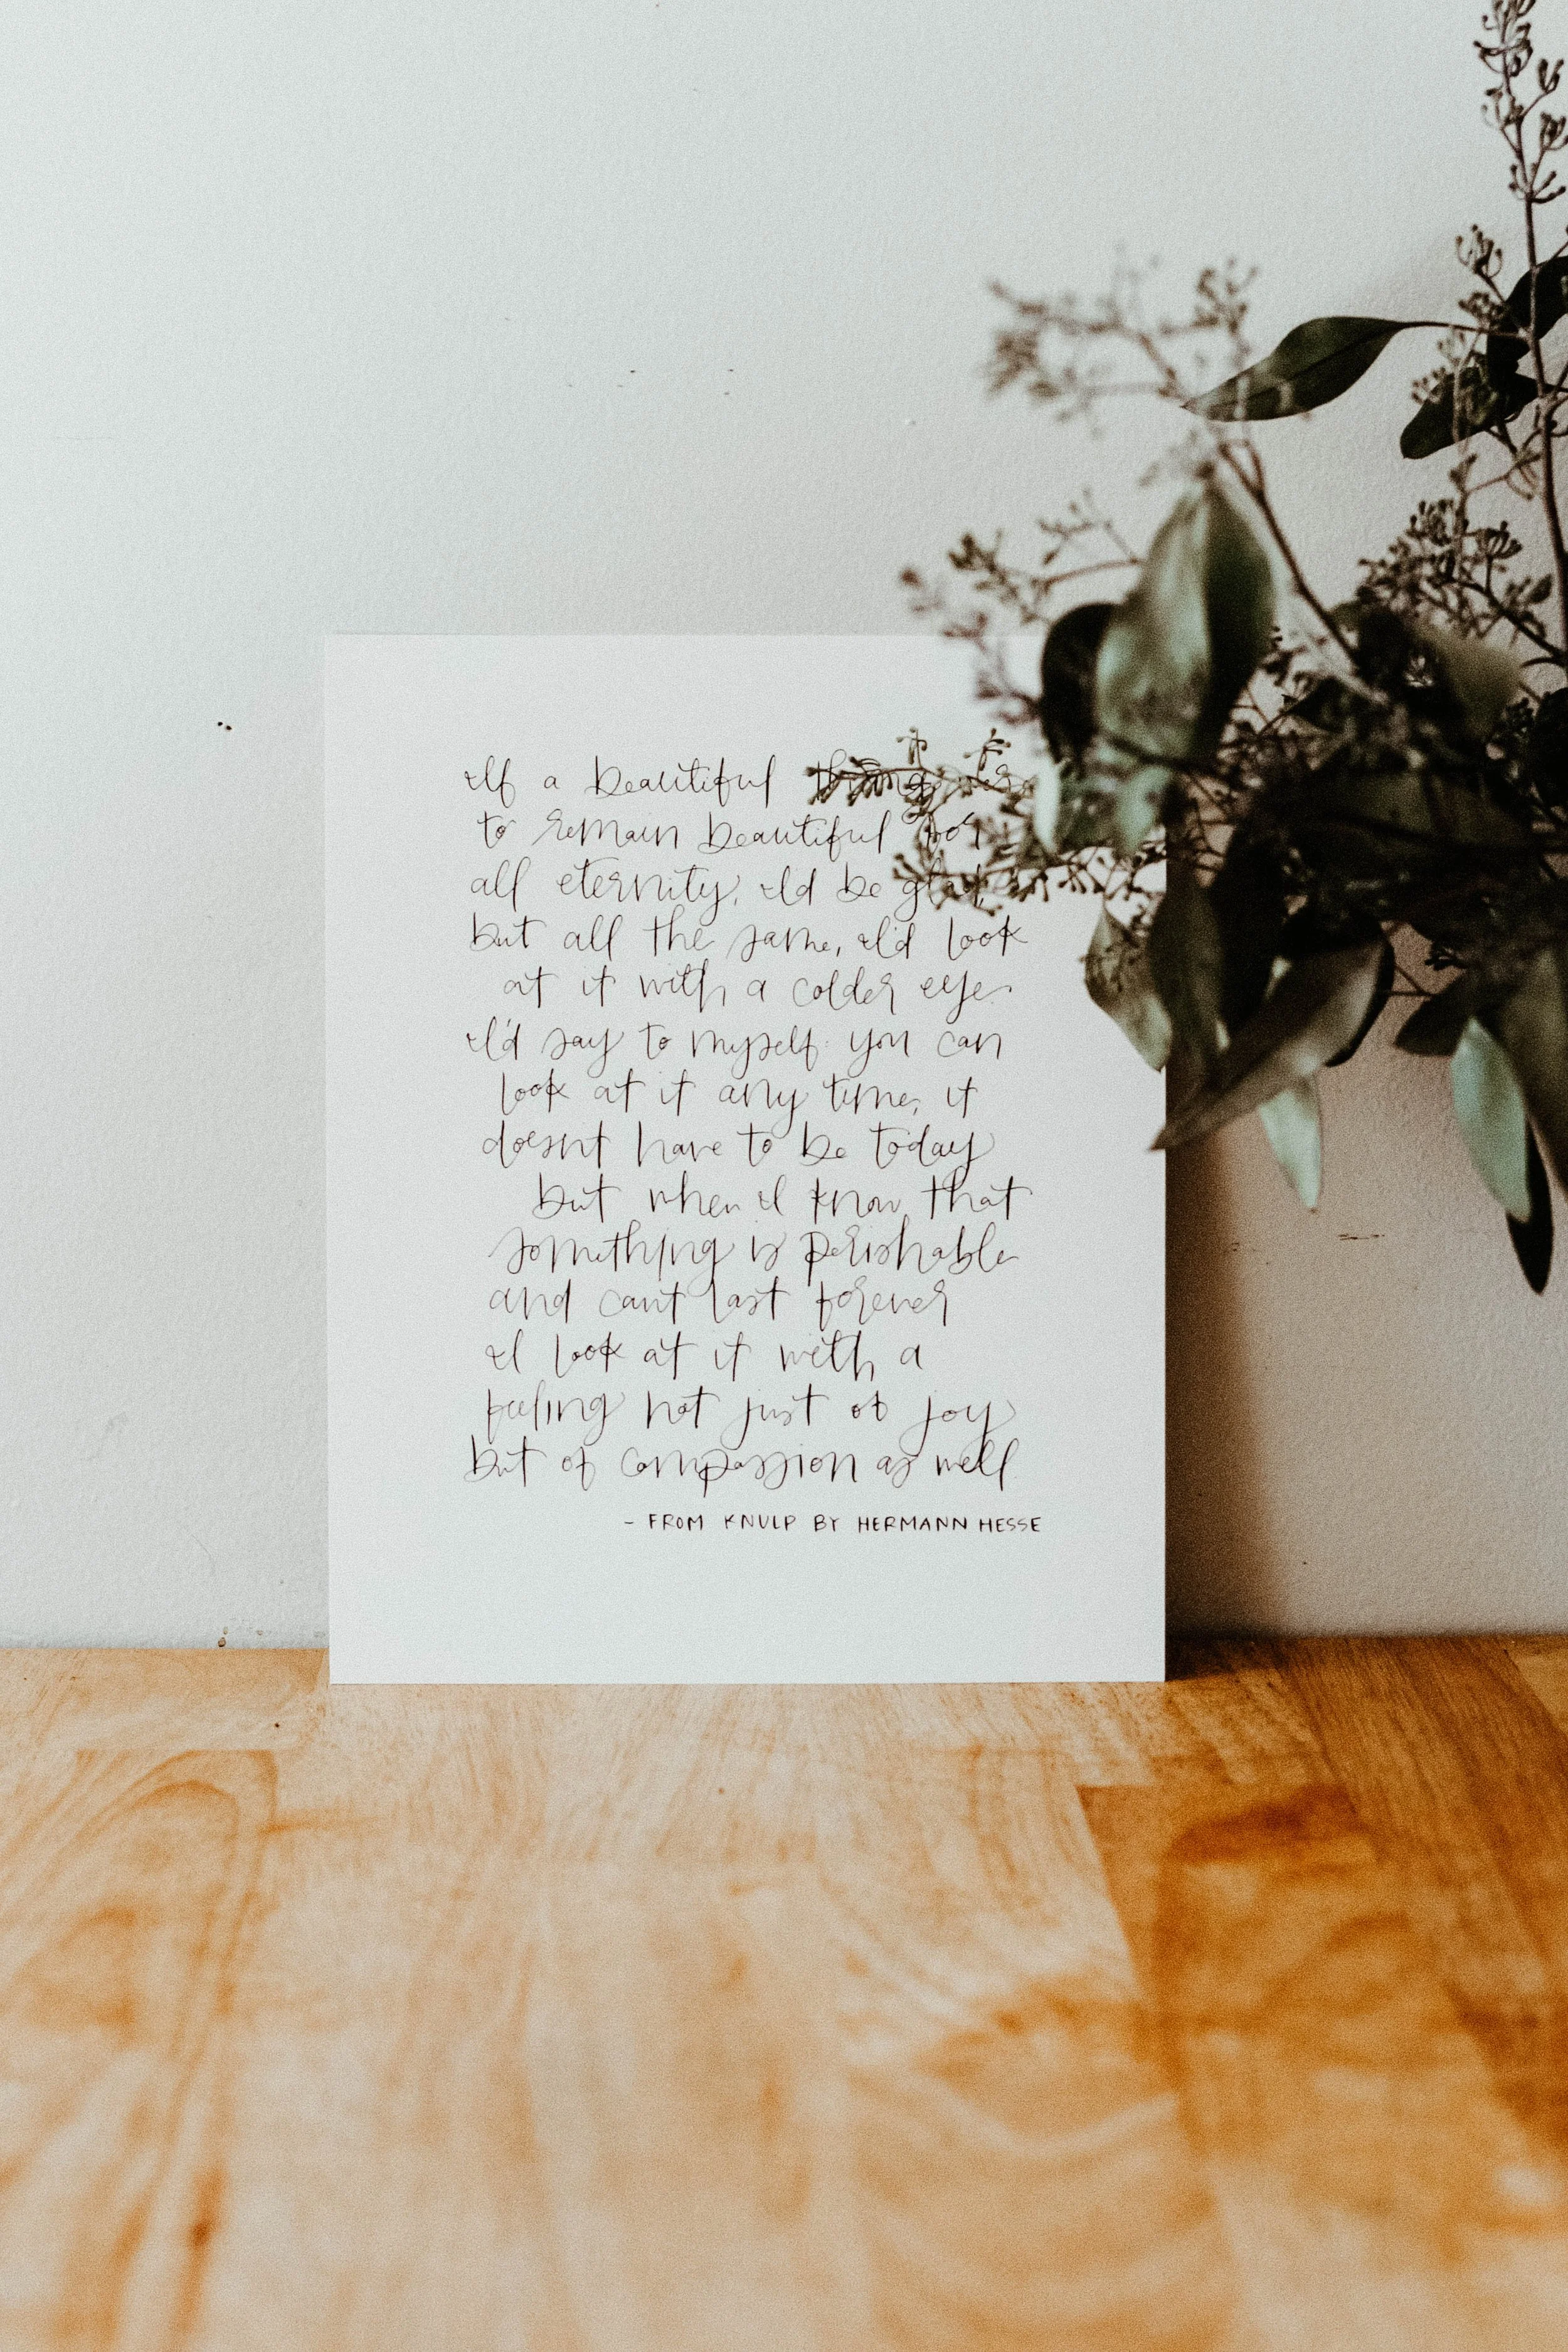 If a beautiful thing were
to remain beautiful for
all eternity, I'd be glad,
but all the same, I'd look
at it with a colder eye.
I'd say to myself: you can
look at it any time, it
doesn't have to be today
but when I know that
something is perishable
and can't last forever
I look at it with a
feeling not just of joy
but of compassion as well
- FROM KNULP BY HERMANN HESSE